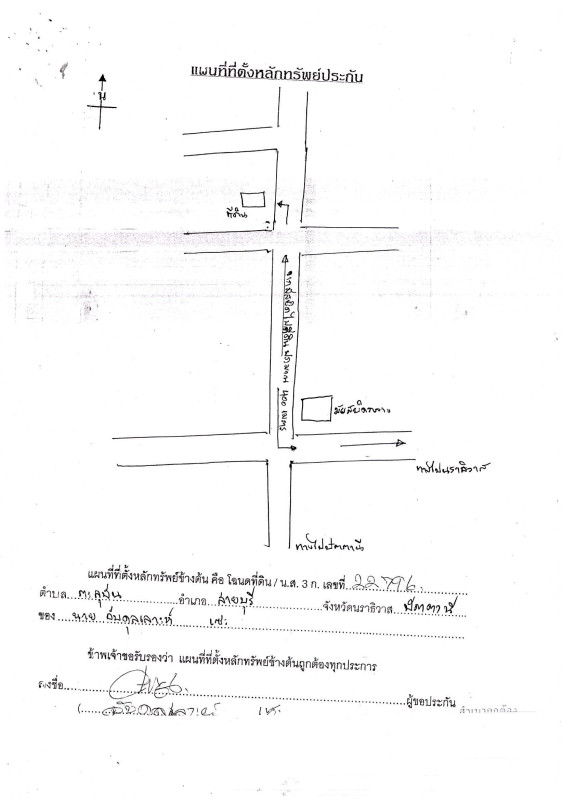 แผนที่ที่ตั้งหลักทรัพย์ประกัน
น
ที่ดิน
จากมัสยิดไปที่ดิน ประมาณ ๔๐๐ เมตร
มัสยิดกลาง
ทางไปนราธิวาส
ทางไปปัตตานี
แผนที่ที่ตั้งหลักทรัพย์ข้างต้น คือ โฉนดที่ดิน / น.ส. 3 ก. เลขที่ 22796
ตำบล อำเภอ สายบุรี จังหวัดนราธิวาส ปัตตานี
ของ นาย
ข้าพเจ้าขอรับรองว่า แผนที่ที่ตั้งหลักทรัพย์ข้างต้นถูกต้องทุกประการ
ลงชื่อ ผู้ขอประกัน
(
สำเนาถูกต้อง